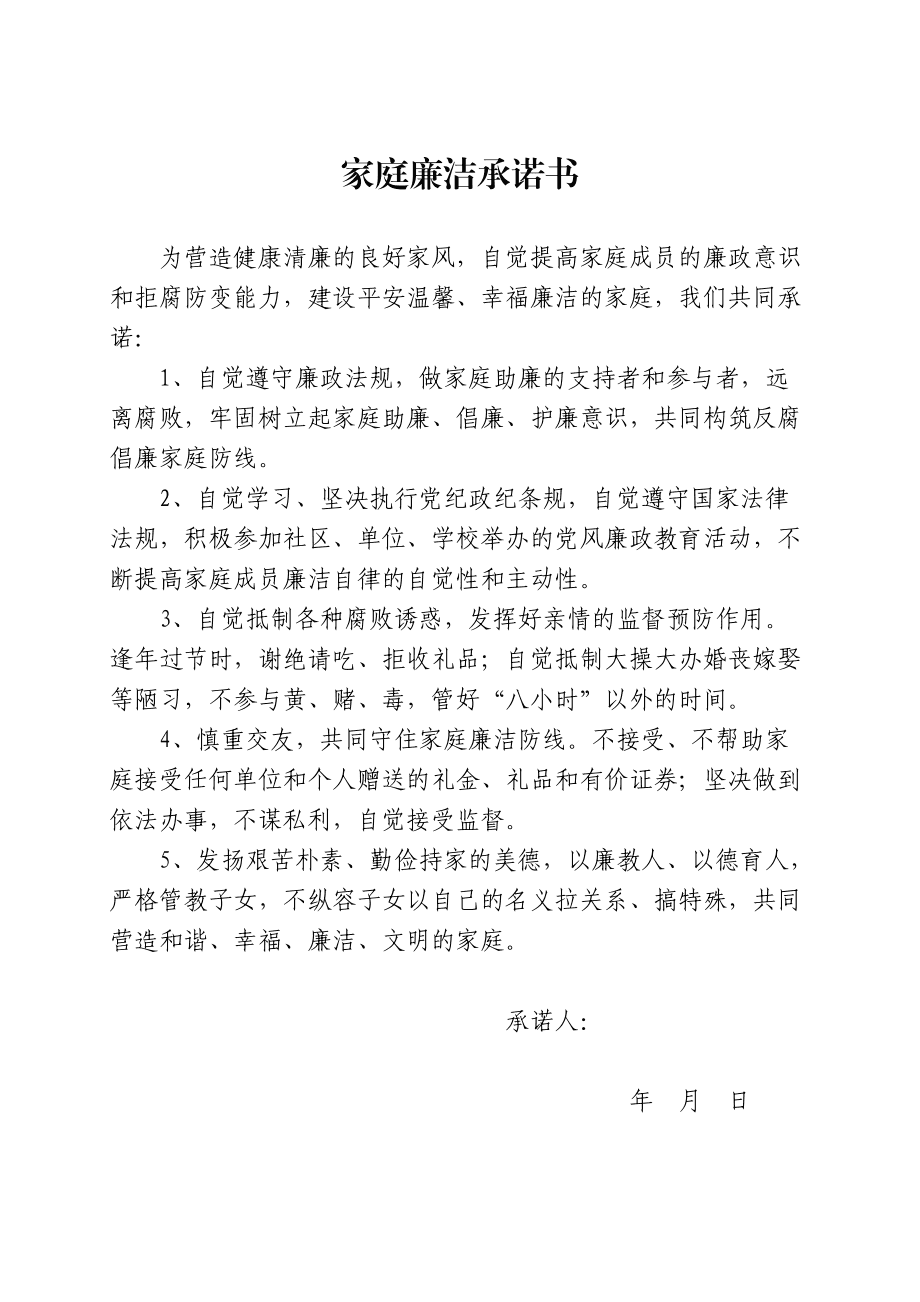 家庭廉洁承诺书
为营造健康清廉的良好家风，自觉提高家庭成员的廉政意识
和拒腐防变能力，建设平安温馨、幸福廉洁的家庭，我们共同承
诺：
1、自觉遵守廉政法规，做家庭助廉的支持者和参与者，远
离腐败，牢固树立起家庭助廉、倡廉、护廉意识，共同构筑反腐
倡廉家庭防线。
2、自觉学习、坚决执行党纪政纪条规，自觉遵守国家法律
法规，积极参加社区、单位、学校举办的党风廉政教育活动，不
断提高家庭成员廉洁自律的自觉性和主动性。
3、自觉抵制各种腐败诱惑，发挥好亲情的监督预防作用。
逢年过节时，谢绝请吃、拒收礼品；自觉抵制大操大办婚丧嫁娶
等陋习，不参与黄、赌、毒，管好“八小时”以外的时间。
4、慎重交友，共同守住家庭廉洁防线。不接受、不帮助家
庭接受任何单位和个人赠送的礼金、礼品和有价证券；坚决做到
依法办事，不谋私利，自觉接受监督。
5、发扬艰苦朴素、勤俭持家的美德，以廉教人、以德育人，
严格管教子女，不纵容子女以自己的名义拉关系、搞特殊，共同
营造和谐、幸福、廉洁、文明的家庭。
承诺人：
年 月 日